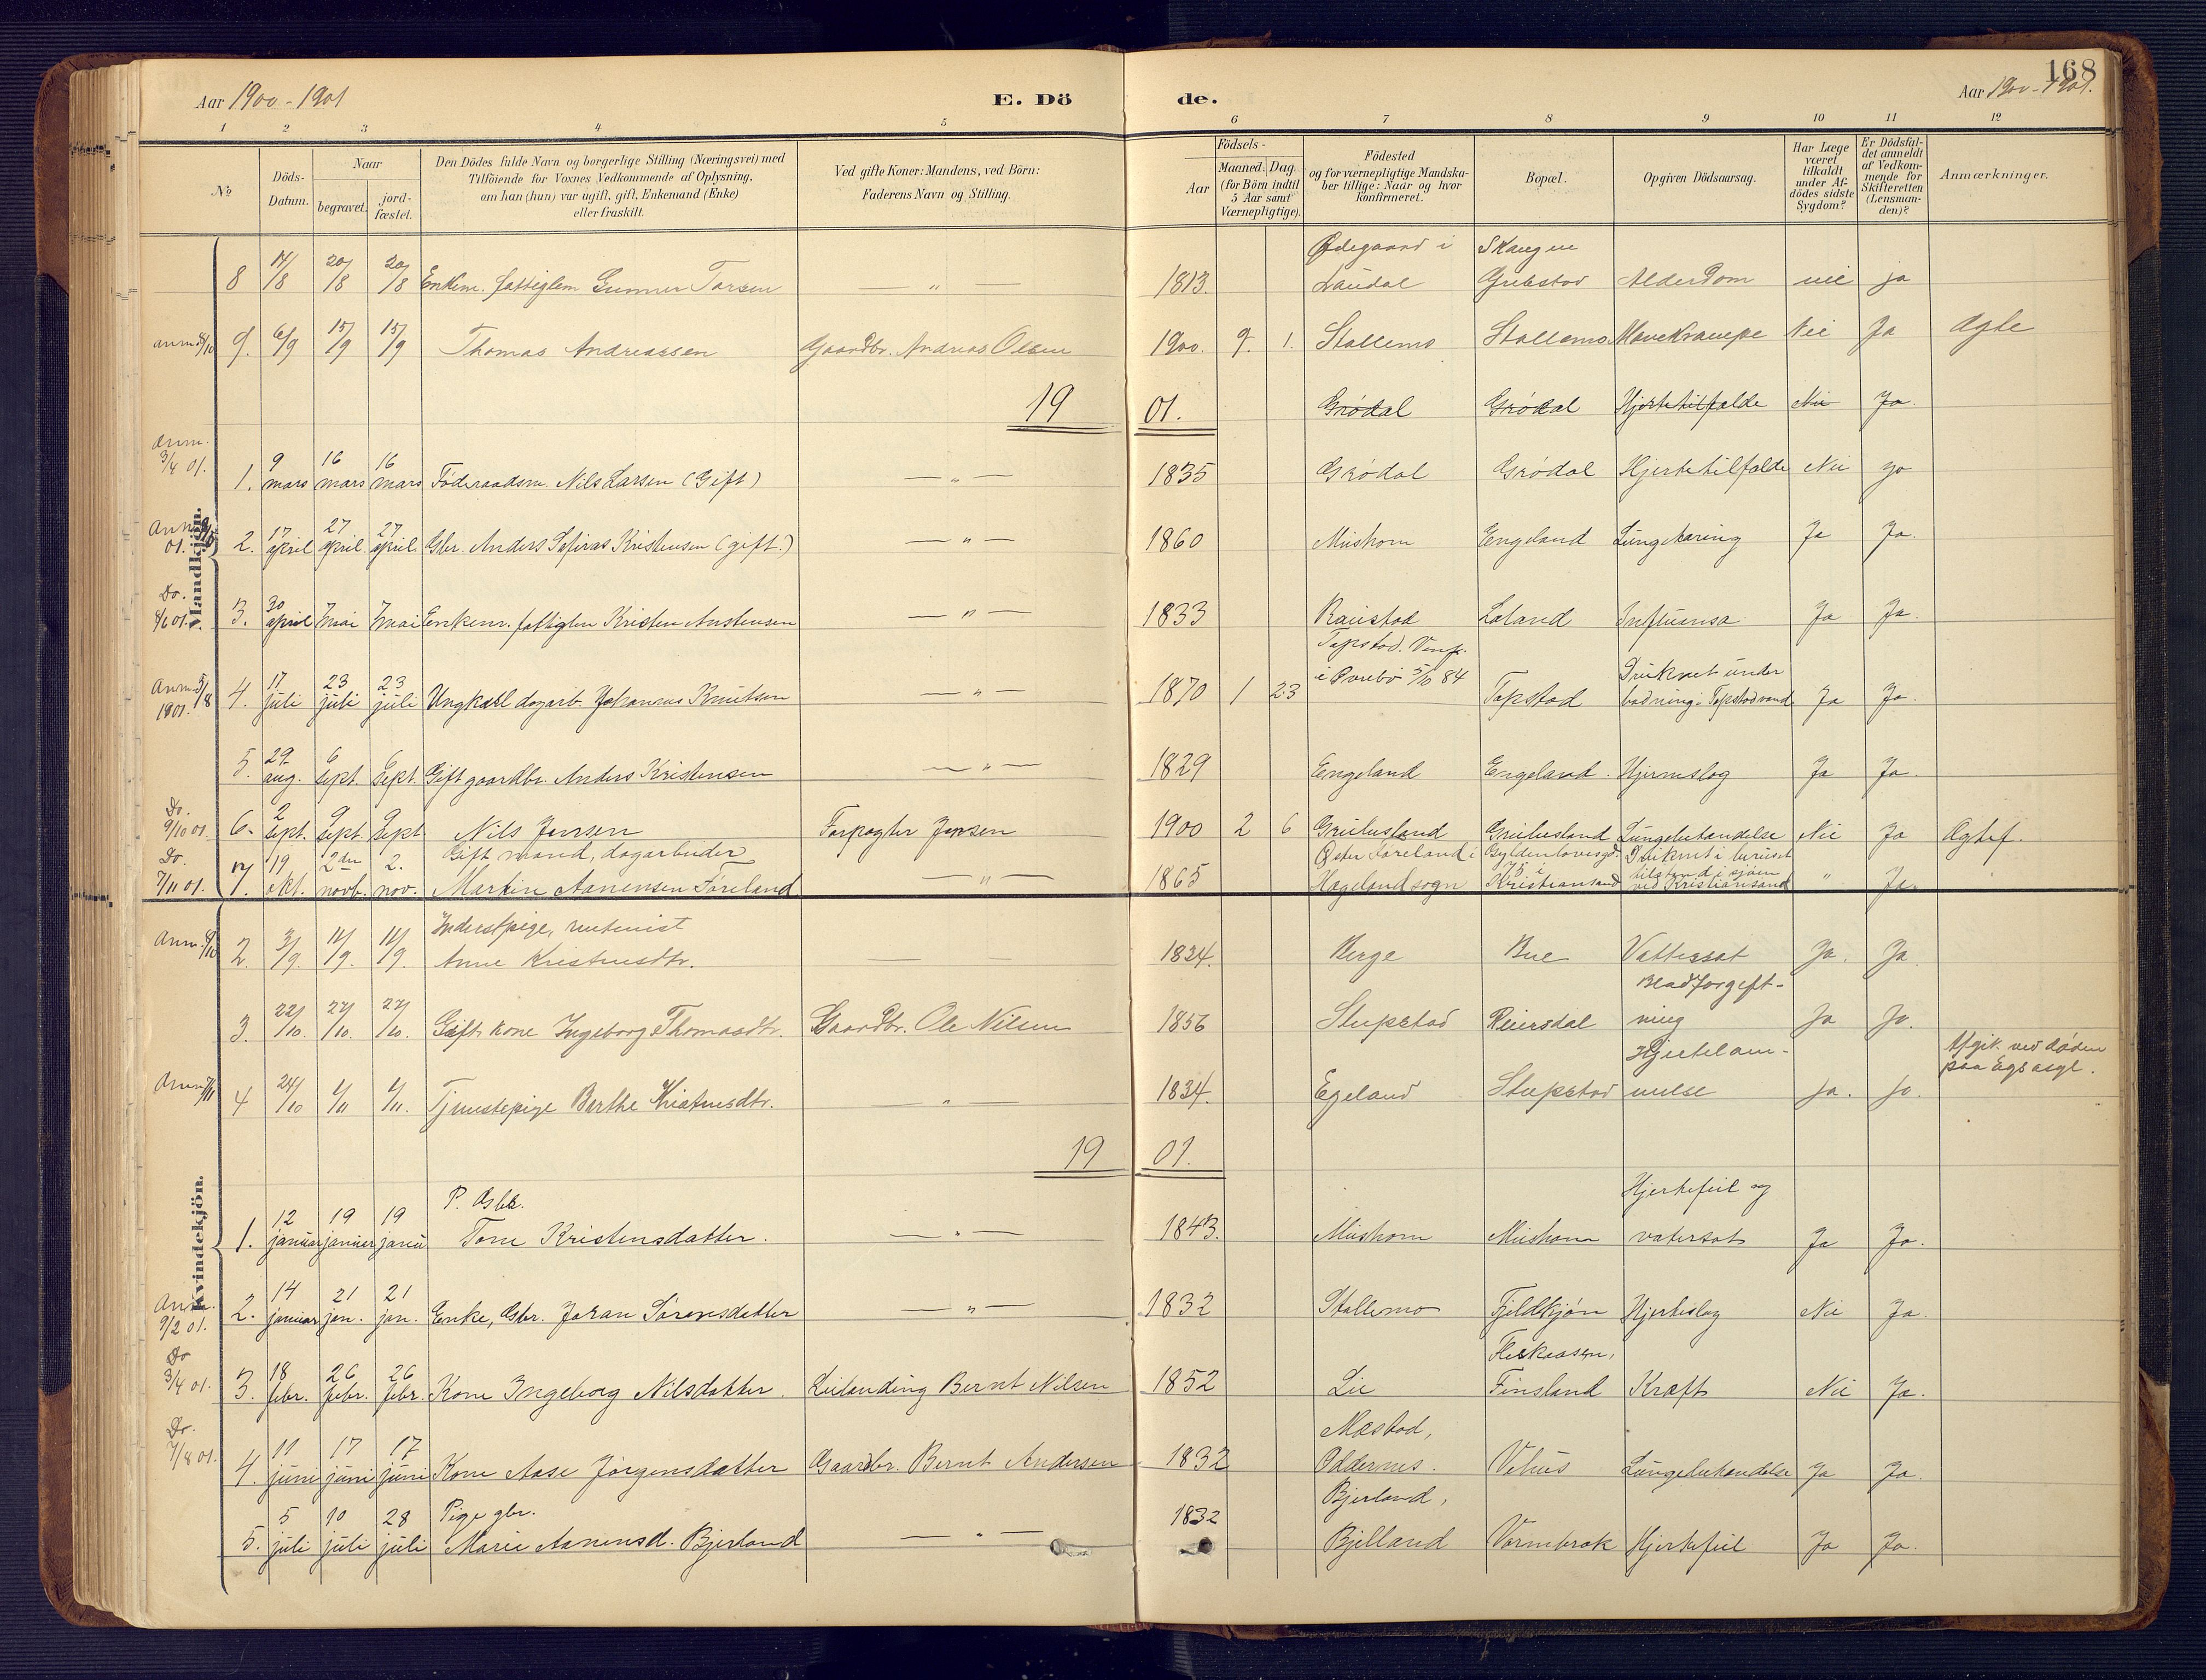 168
Aar 1900-1901
E. Dö
de.
Aar 1900-1901.
1 2 3 4 5 6 7 8 9 10 11 12
No
Döds-Datum.
Naar
begravet.
jord-fæstet.
Den Dödes fulde Navn og borgerlige Stilling (Næringsvei) med
Tilföiende for Voxnes Vedkommende af Oplysning,
om han (hun) var ugift, gift, Enkemand (Enke)
eller fraskilt.
Ved gifte Koner: Mandens, ved Börn:
Faderens Navn og Stilling.
Födsels-
Aar
Maaned. Dag.
(for Börn indtil
5 Aar samt
Værnepligtige).
Födested
og for værnepligtige Mandska-
ber tillige: Naar og hvor
konfirmeret.
Bopæl.
Opgiven Dödsaarsag.
Har Læge
været
tilkaldt
under Af-
dödes sidste
Sygdom?
Er Dödsfal-
det anmeldt
af Vedkom-
mende for
Skifteretten
(Lensman-
den)?
Anmærkninger.
Mandkjön.
8 14/8 20/8 20/8 Enkem. fattiglem Gunner Tarsen — " — 1813. Ødegaard i Laudal Skaugen Grebstad Alderdom nei ja
9. 6/9 15/9 15/9 Thomas Andreassen Gaardbr. Andreas Olsen 1900. 9. 1. Stallemo Stallemo Mavekrampe Nei Ja Ægte
19 01. Grödal Grödal Hjertetilfælde Nei Ja.
Anm. 3/4 01.
1. 9 mars 16 mars 16 mars Föderaadsm. Nils Larsen (Gift) — " — 1835 Grödal Grödal Hjertetilfælde Nei Ja
2. 17 april 27 april 27 april. Gbr. Anders Kristensen (gift.) — " — 1860 Mushom Engeland Lungetæring Ja Ja.
Do.
3. 30 april 7 mai 7 mai Enkem. fattiglem Kristen Austensen — " — 1833 Raustad Laland Influensa Ja Ja.
Anm. 5/8 1901.
4. 17 juli 23 juli 23 juli Ungkarl dagarb. Johannes Knutsen — " — 1870 1 23 Tapstad. i Øvrebö 5/10 84 Tapstad Druknet under badning i Tapstadvand Ja Ja.
5. 29 aug. 6 sept. 6 sept. Gift gaardbr. Anders Kristensen — " — 1829 Engeland Engeland. Hjerneslag Ja Ja.
Do. 9/10 01.
6. 2 sept. 9 sept. 9 sept. Nils Jensen Forpagter Jensen 1900 2 6 Lungebetændelse Nei Ja Ægtef.
Do. 7/11 01.
7. 19 okt. 2den novb. 2. nov. Gift mand, dagarbeider
Martin Aanensen Föreland — " — 1865 Øster Föreland i Hægeland sogn Gyldenlövesgd. i Kristiansand Druknet i beruset tilstand i sjöen ved Kristiansand " Ja.
Kvindekjön.
2. 3/9. 14/9. 14/9. Inderstpige,
Anne Kristensdtr. — — 1834. Berge Bue Vattersot Ja. Ja.
3. 22/10. 27/10. 27/10. Gift kone Ingeborg Thomasdtr. Gaardbr. Ole Nilsen 1856 Stupstad Reiersdal Blodforgiftning Ja Ja.
Anm. 7/11
4 24/10 4/11 4/11. Tjenestepige Berthe Kristensdtr. — " — 1834. Egeland Stupstad Hjertelammelse Ja. Ja. Afgik ved döden paa Egs asyl.
19 01.
1. 12 januar 19 januar 19 janu P.
Tone Kristensdatter. — " — 1843. Mushom Mushom Hjertefeil og vatersot Ja Ja.
Anm. 9/2 01.
2. 14 januar 21 jan. 21 jan. Enke, Joran Sörensdatter — " — 1832 Stallemo Fjeldkjön Hjerteslag Nei Ja.
Do 3/4 01.
3. 18 febr. 26 febr. 26 febr. Kone Ingeborg Nilsdatter. Leilænding Bernt Nilsen 1852 Lie Fleskaasen, Finsland Kræft Nei Ja.
Do. 7/8 01.
4. 11 juni 17 juni 17 juni Kone Aase Jörgensdatter Gaardbr. Bernt Andersen 1832 Mæstad, Oddernes. Vehus Lungebetændelse Ja Ja.
5. 5 juli 10 juli 28 juli Pige gbr.
Marie Aanensd. Bjerland — " — 1832 Bjerland, Bjelland Varmbrok Hjertefeil Ja Ja.